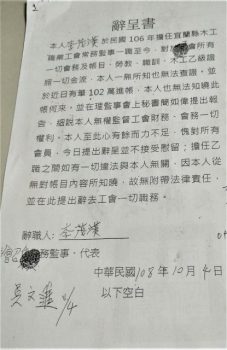 辭呈書
本人李茂濱於民國106年擔任宜蘭縣木工
職業工會常務監事一職至今，對於會所有
一切會務及帳目、勞教、職訓、木工乙級證
照一切金流，本人一無所知也無法查證。並
於近日有筆102萬進帳，本人也無法知曉此
帳何來。並在理監事會上秘書簡如偉提出報
告，細說本人無權監督工會財務、會務一切
權利。本人至此心有餘而力不足，愧對所有
會員，今日提出辭呈並不接受慰留；擔任乙
職之間如有一切違法與本人無關，因本人從
無對帳目內容所知曉，故無附帶法律責任，
並在此提出辭去工會一切職務。
辭職人：李茂濱
務監事、代表
中華民國108年10月4日
以下空白